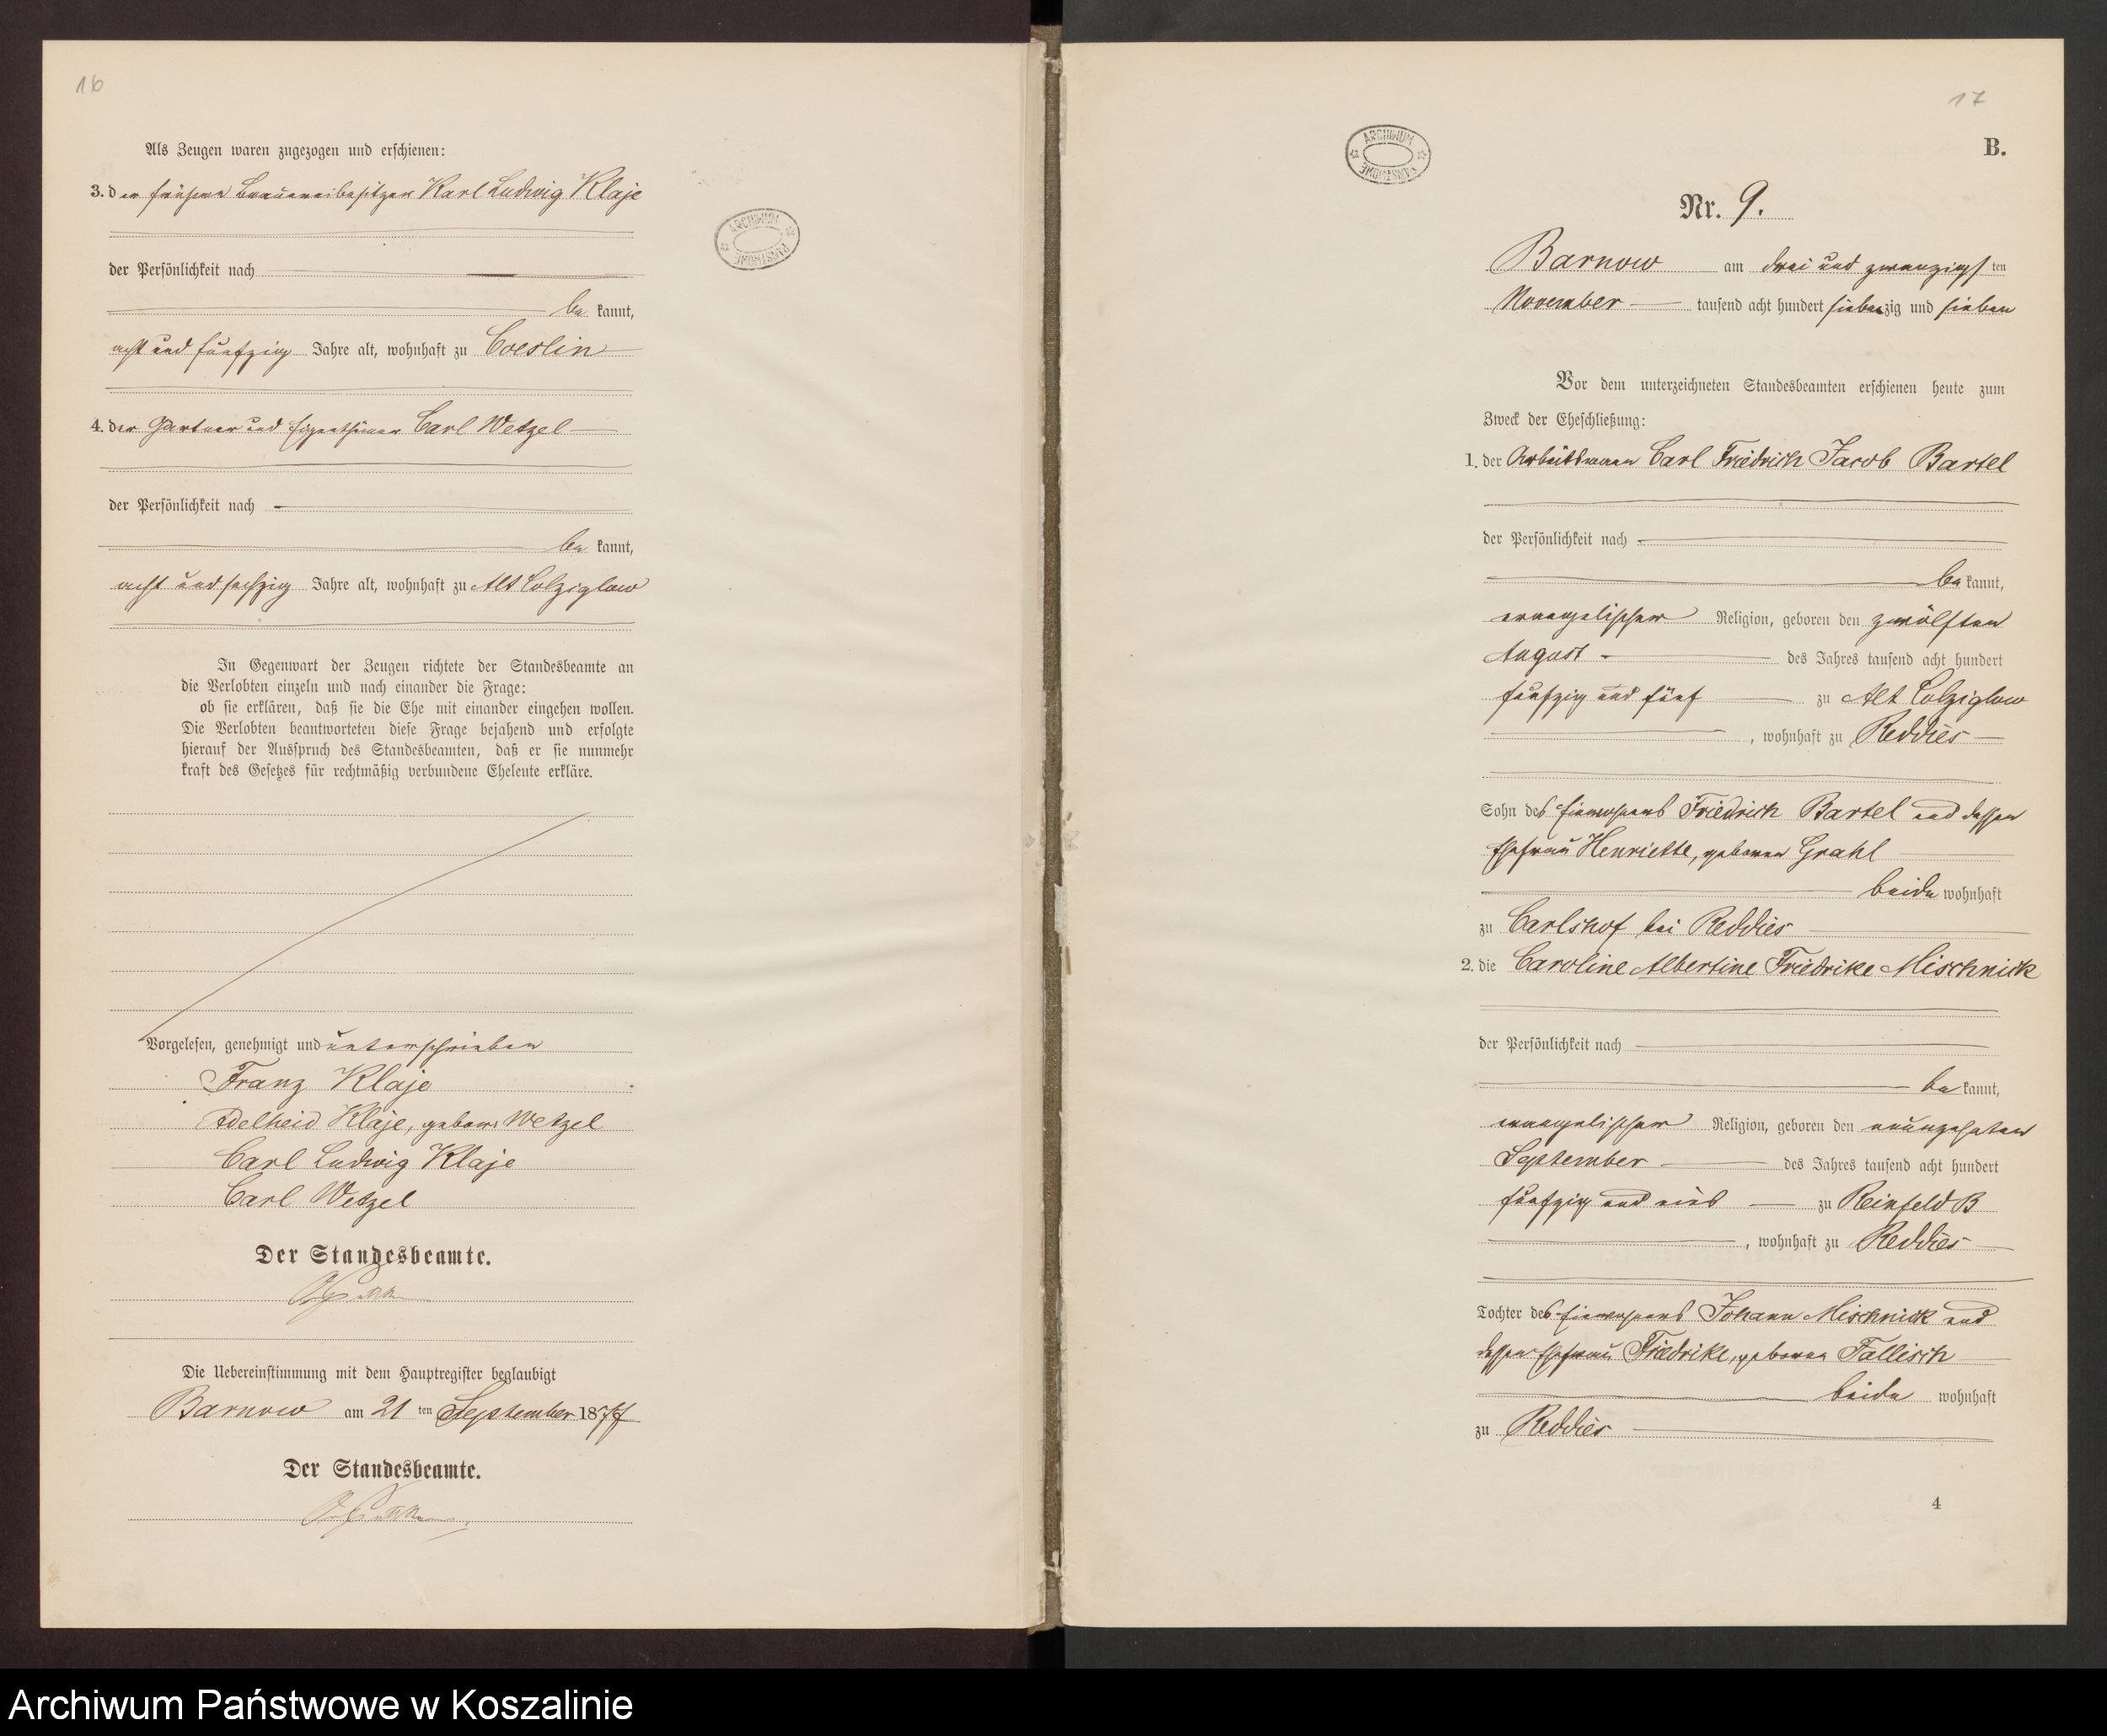 16
Als Zeugen waren zugezogen und erschienen:
3. der frühere Brauereibesitzer Karl Ludwig Klaje
der Persönlichkeit nach
be kannt,
acht und fünfzig Jahre alt, wohnhaft zu Coeslin
4. der Gärtner und Eigenthümer Carl Wetzel
der Persönlichkeit nach
be kannt,
acht und sechzig Jahre alt, wohnhaft zu Alt Colziglow
In Gegenwart der Zeugen richtete der Standesbeamte an
die Verlobten einzeln und nach einander die Frage:
ob sie erklären, daß sie die Ehe mit einander eingehen wollen.
Die Verlobten beantworteten diese Frage bejahend und erfolgte
hierauf der Ausspruch des Standesbeamten, daß er sie nunmehr
kraft des Gesetzes für rechtmäßig verbundene Eheleute erkläre.
Vorgelesen, genehmigt und unterschrieben
Franz Klaje
Adelheid Klaje, gebor. Wetzel
Carl Ludwig Klaje
Carl Wetzel
Der Standesbeamte.
Die Uebereinstimmung mit dem Hauptregister beglaubigt
Barnow am 21 ten September 1877
Der Standesbeamte.
ARCHIWUM PAŃSTWOWE
17
ARCHIWUM PAŃSTWOWE
B.
Nr. 9.
Barnow am drei und zwanzigs ten
November tausend acht hundert siebenzig und sieben
Vor dem unterzeichneten Standesbeamten erschienen heute zum
Zweck der Eheschließung:
1. der Arbeitsmann Carl Friedrich Jacob Bartel
der Persönlichkeit nach
be kannt,
evangelischer Religion, geboren den zwölften
August des Jahres tausend acht hundert
fünfzig und fünf zu Alt Colziglow
, wohnhaft zu Reddies
Sohn des Einwohners Friedrich Bartel und dessen
Ehefrau Henriette, geboren Grahl
beide wohnhaft
zu Carlshof bei Reddies
2. die Caroline Albertine Friedrike Mischnick
der Persönlichkeit nach
be kannt,
evangelischer Religion, geboren den neunzehnten
September des Jahres tausend acht hundert
fünfzig und eins zu Reinfeld B
, wohnhaft zu Reddies
Tochter des Einwohners Johann Mischnick und
dessen Ehefrau Friedrike, geboren Tallisch
beide wohnhaft
zu Reddies
4
Archiwum Państwowe w Koszalinie